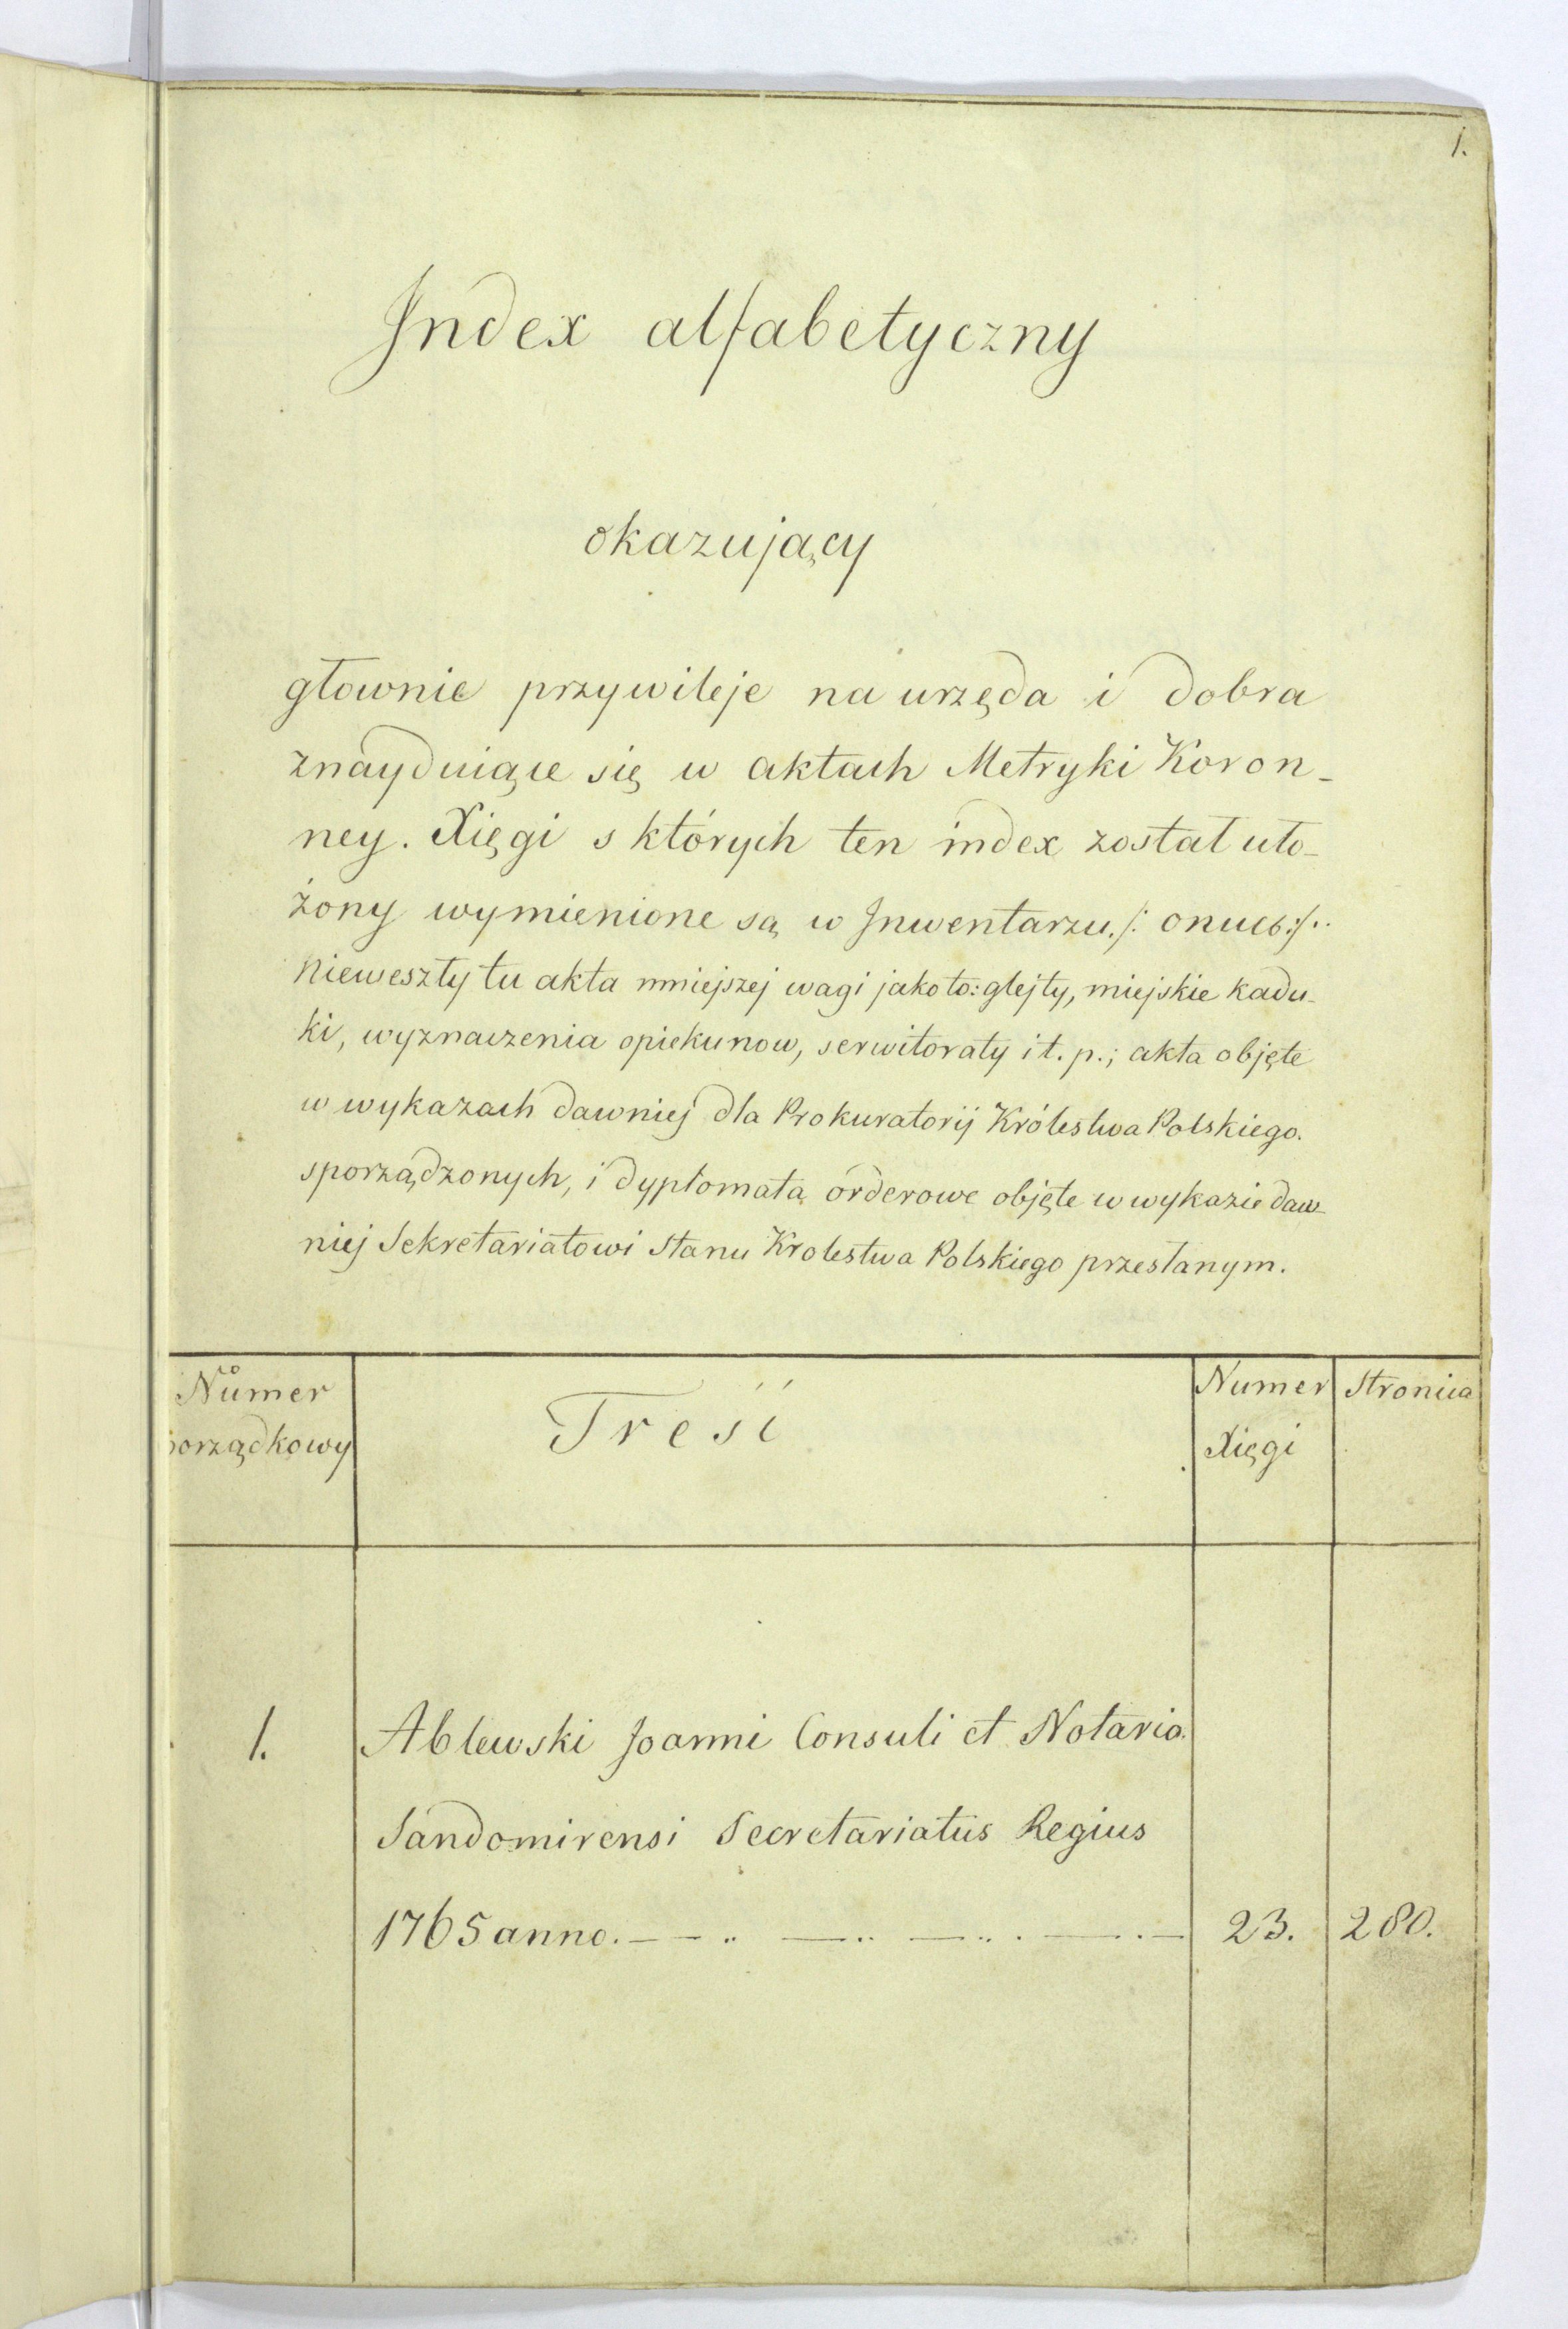 1.
Index alfabetyczny
okazujący
głownie przywileje na urzęda i dobra
znayduiące się w aktach Metryki Koron-
ney. Xięgi s których ten index został uło-
żony wymienione są w Inwentarzu ./:
nieweszły tu akta mniejszej wagi jako to: glejty, miejskie kadu-
ki, wyznaczenia opiekunow, serwitoraty i t. p.; akta objęte
w wykazach dawniej dla Prokuratorij Królestwa Polskiego.
sporządzonych, i dyplomata orderowe objęte w wykazie daw-
niej Sekretariatowi Stanu Krolestwa Polskiego przesłanym.
Numer porządkowy
Treść
Numer Xięgi
Stronica
1. Ablewski Joanni Consuli et Notario
Sandomirensi Secretariatus Regius
1765 anno. 23. 280.